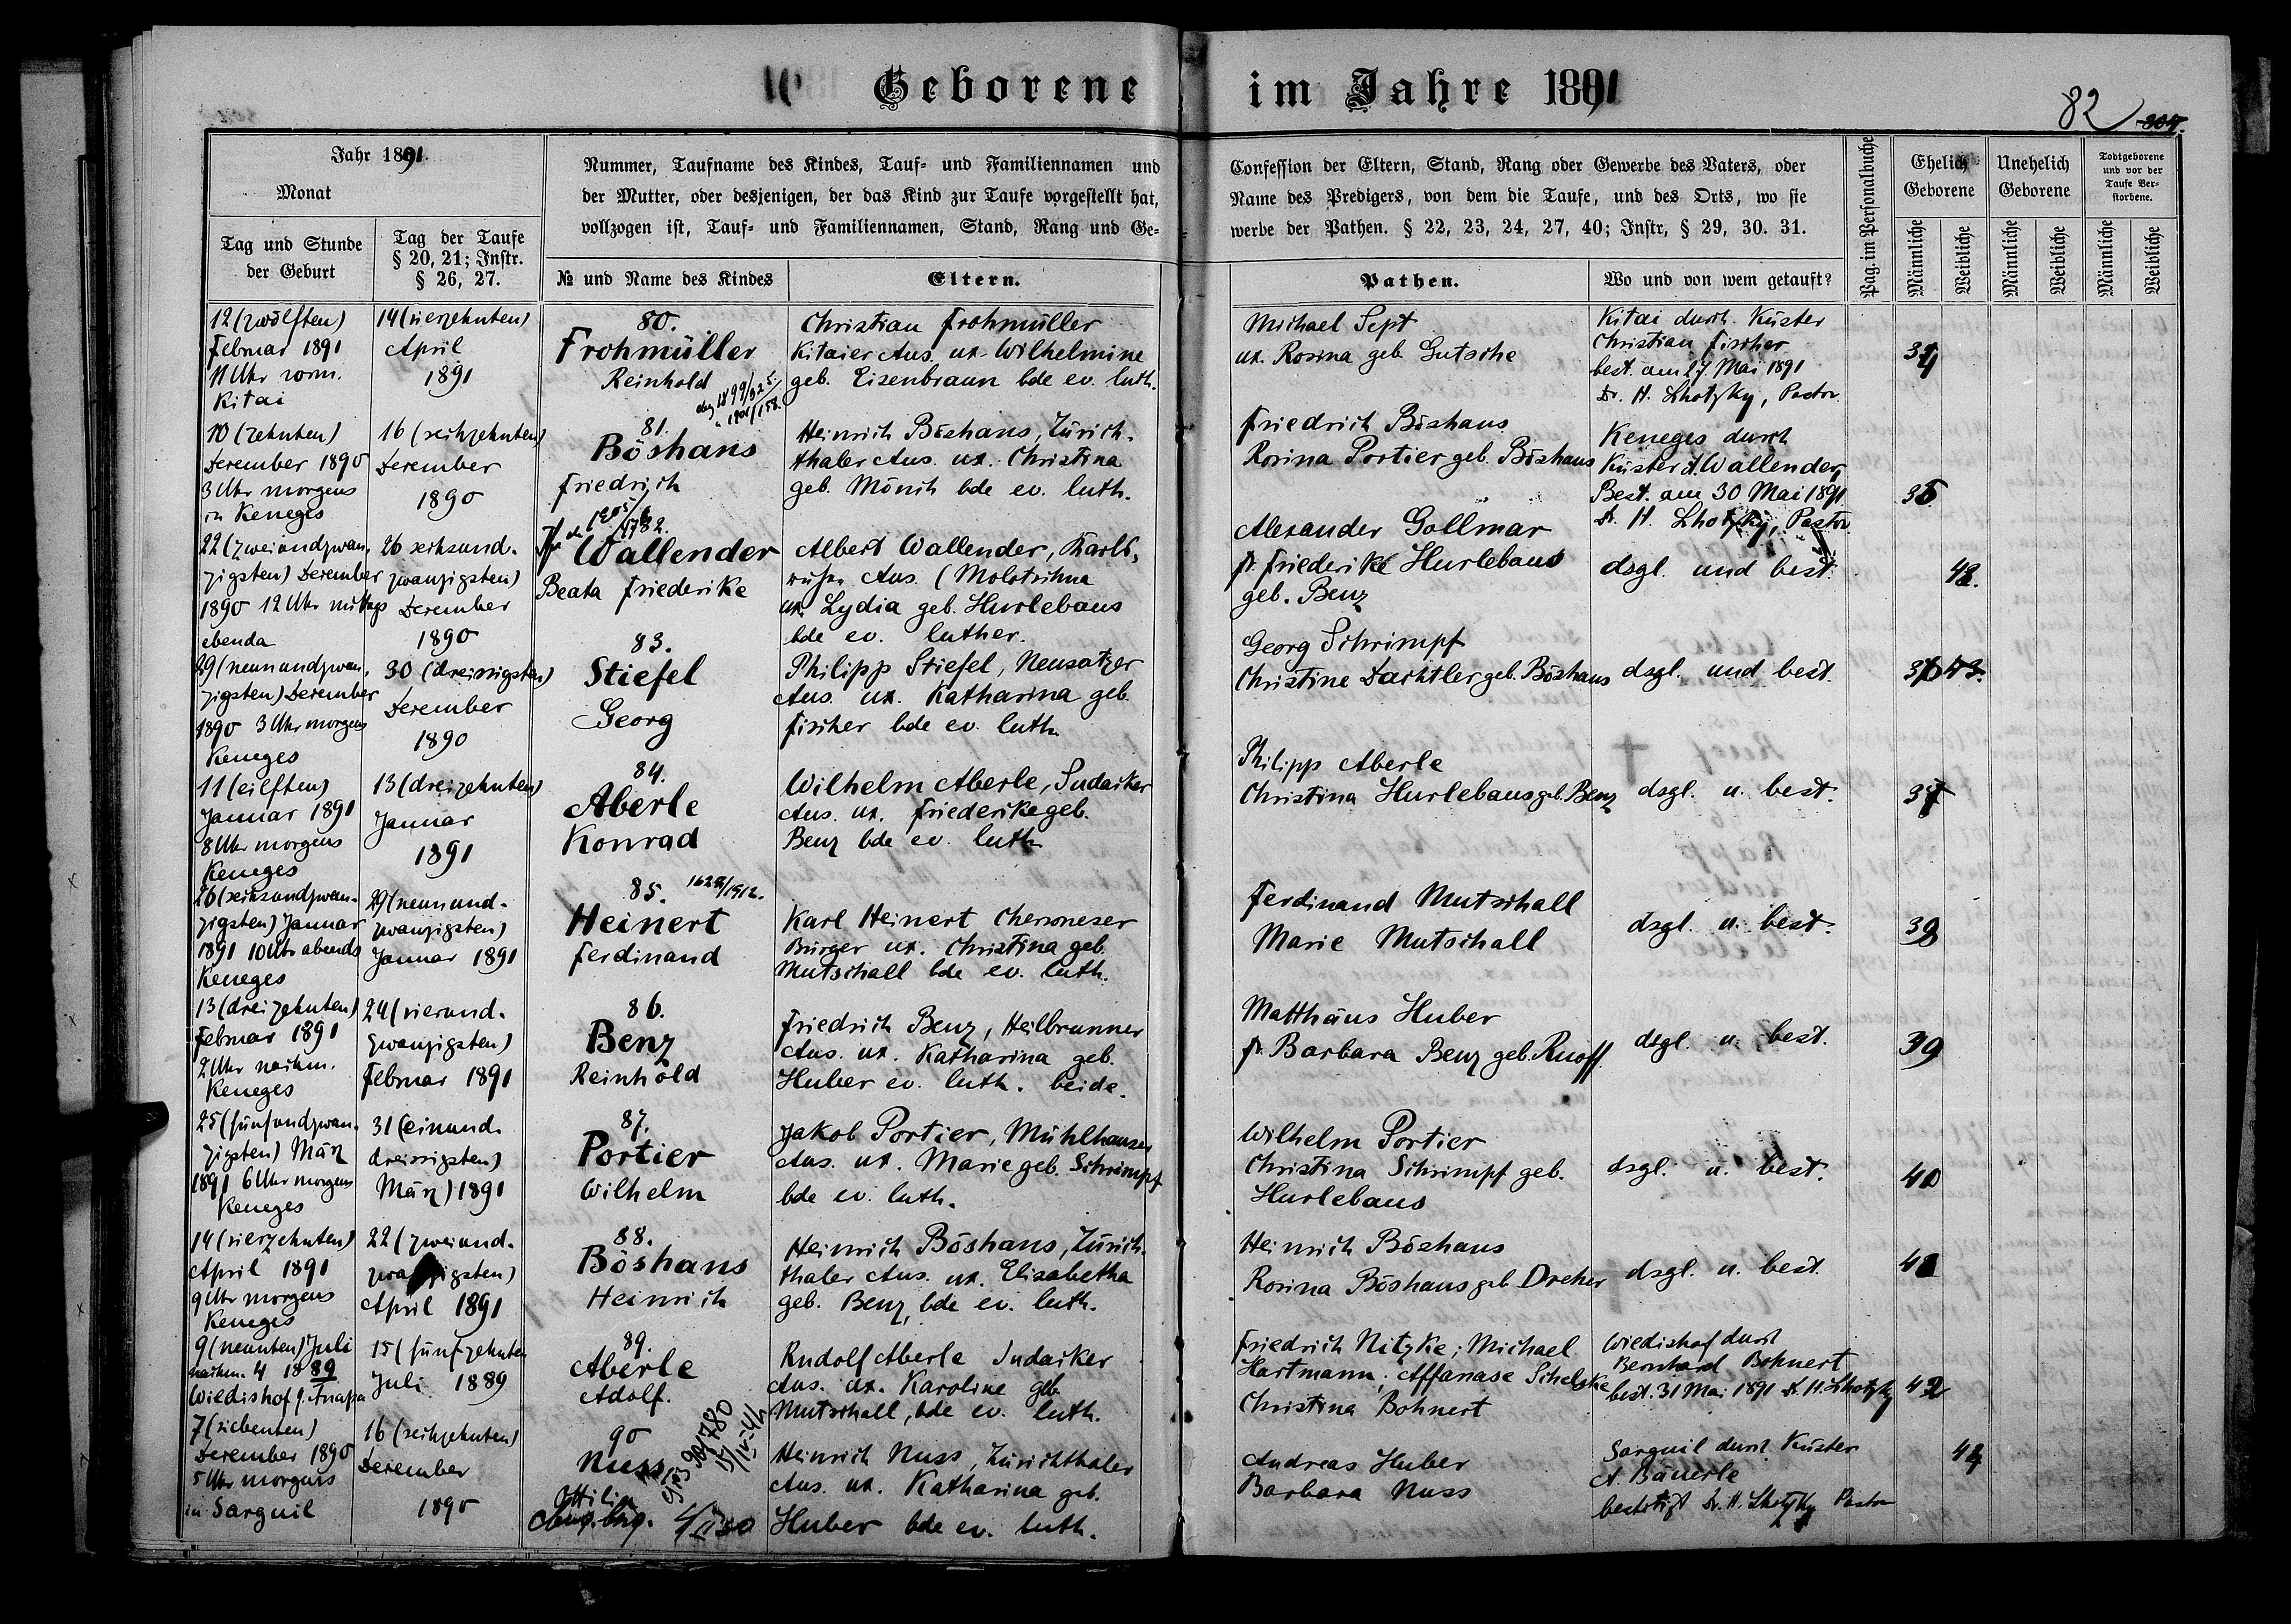 Geborene im Jahre 1891
82
Jahr 1891.
Monat
Tag und Stunde
der Geburt
Tag der Taufe
§ 20, 21; Instr.
§ 26, 27.
Nummer, Taufname des Kindes, Tauf- und Familiennamen und
der Mutter, oder desjenigen, der das Kind zur Taufe vorgestellt hat,
vollzogen ist, Tauf- und Familiennamen, Stand, Rang und Ge-
№ und Name des Kindes
Eltern.
Confession der Eltern, Stand, Rang oder Gewerbe des Vaters, oder
Name des Predigers, von dem die Taufe, und des Orts, wo sie
werbe der Pathen. § 22, 23, 24, 27, 40; Instr, § 29, 30. 31.
Pathen.
Wo und von wem getauft?
Pag. im Personalbuche
Ehelich
Geborene
Unehelich
Geborene
Todtgeborene
und vor der
Taufe Ver-
storbene.
Männliche
Weibliche
Männliche
Weibliche
Männliche
Weibliche
12 (zwölften)
Februar 1891
11 Uhr vorm.
Kitai
14 (vierzehnten)
April
1891
80.
Frohmüller
Reinhold
Christian Frohmüller
Kitaier Ans. ux. Wilhelmine
geb. Eisenbraun bde ev. luth.
Michael Sept
ux. Rosina geb. Gutsche
Kitai durch Küster
Christian Fischer
best. am 27 Mai 1891
Dr. H. Lhotzky, Pastor.
10 (zehnten)
Dezember 1890
3 Uhr morgens
in Keneges
16 (sechzehnten)
Dezember
1890
81.
Böshans
Friedrich
Heinrich Böshans, Zürich-
thaler Ans. ux. Christina
geb. Mönch bde ev. luth.
Friedrich Böshans
Rosina Portier geb. Böshans
Keneges durch
Küster A. Wallender,
Best. am 30 Mai 1891
Dr. H. Lhotzky, Pastor
22 (zweiundzwan-
zigsten) Dezember
1890 12 Uhr mittags
ebenda
26 sechsund-
zwanzigsten)
Dezember
1890
82.
Wallender
Beata Friederike
Albert Wallender, Karls-
ruher Ans. (Molotschna
ux. Lydia geb. Hurlebaus
bde ev. luther.
Alexander Gollmar
fr. Friederike Hurlebaus
geb. Benz
dsgl. und best.
29 (neunundzwan-
zigsten) Dezember
1890 3 Uhr morgens
Keneges
30 (dreissigsten)
Dezember
1890
83.
Stiefel
Georg
Philipp Stiefel, Neusatzer
Ans. ux. Katharina geb.
Fischer bde ev. luth.
Georg Schrimpf
Christine Dachtler geb. Böshans
dsgl. und best.
11 (eilften)
Januar 1891
8 Uhr morgens
Keneges
13 (dreizehnten)
Januar
1891
84.
Aberle
Konrad
Wilhelm Aberle, Sudaiker
Ans. ux. Friederike geb.
Benz bde ev. luth
Philipp Aberle
Christina Hurlebaus geb. Benz
dsgl. u. best.
26 (sechsundzwan-
zigsten) Januar
1891 10 Uhr abends
Keneges
29 (neunund-
zwanzigsten)
Januar 1891
85.
Heinert
Ferdinand
Karl Heinert Chersoneser
Bürger ux. Christina geb.
Mutschall bde ev. luth.
Ferdinand Mutschall
Marie Mutschall
dsgl. u. best.
13 (dreizehnten)
Februar 1891
2 Uhr nachm.
Keneges
24 (vierund-
zwanzigsten)
Februar 1891
86.
Benz
Reinhold
Friedrich Benz, Heilbrunner
Ans. ux. Katharina geb.
Huber ev. luth. beide.
Matthäus Huber
fr. Barbara Benz geb. Ruoff.
dsgl. u. best.
39
25 (fünfundzwan-
zigsten) März
1891 6 Uhr morgens
Keneges
31 (einund-
dreissigsten)
März) 1891
87.
Portier
Wilhelm
Jakob Portier, Mühlhauser
Ans. ux. Marie geb. Schrimpf
bde ev. luth.
Wilhelm Portier
Christina Schrimpf geb.
Hurlebaus
dsgl. u. best.
40
14 (vierzehnten)
April 1891
9 Uhr morgens
Keneges
22 (zweiund-
zwanzigsten)
April 1891
88.
Böshans
Heinrich
Heinrich Böshans, Zürich-
thaler Ans. ux. Elisabetha
geb. Benz, bde ev. luth.
Heinrich Böshans
Rosina Böshans geb. Dreher
dsgl. u. best.
41
9 (neunten) Juli
nachm. 4 1889
Wiedishof
15 (fünfzehnten
Juli 1889
89.
Aberle
Adolf.
Rudolf Aberle Sudaiker
Ans. ux. Karoline geb.
Mutschall, bde ev. luth.
Friedrich Nitzke; Michael
Hartmann; Affanase Schelske
Christina Bohnert
Wiedishof durch
Bernhard Bohnert
best. 31 Mai 1891 Dr. H. Lhotzky
42
7 (siebenten)
Dezember 1890
5 Uhr morgens
in Sarguil
16 (sechzehnten)
Dezember
1890
90
Nuss
Ottilia
Heinrich Nuss, Zürichthaler
Ans. ux. Katharina geb.
Huber bde ev. luth.
Andreas Huber
Barbara Nuss
Sarguil durch Küster
A. Bäuerle
bestätigt Dr. H. Lhotzky Pastor